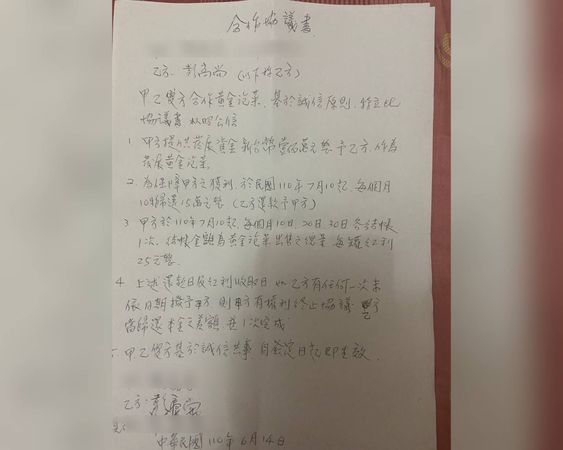 合作協議書
乙方：彭高尚（以下稱乙方）
甲乙雙方合作黃金泡菜，基於誠信原則，特立此
協議書 以昭公信
1. 甲方提供發展資金新台幣壹佰萬元整予乙方，作為
發展黃金泡菜。
2. 為保障甲方之獲利，於民國110年7月10起，每個月
10歸還15萬元整（乙方還款予甲方）
3 甲方於110年7月10起，每個月10日、20日、30日各結帳
1次，結帳金額為黃金泡菜出售之總量，每罐紅利
25元整。
4 上述還款日及紅利收取日，如乙方有任何一次未
依日期撥予甲方，則甲方有權利終止協議，乙方
當歸還本金之差額，並1次完成
甲乙雙方基於誠信共事，自簽定日起即生效。
乙方：
中華民國110年6月14日